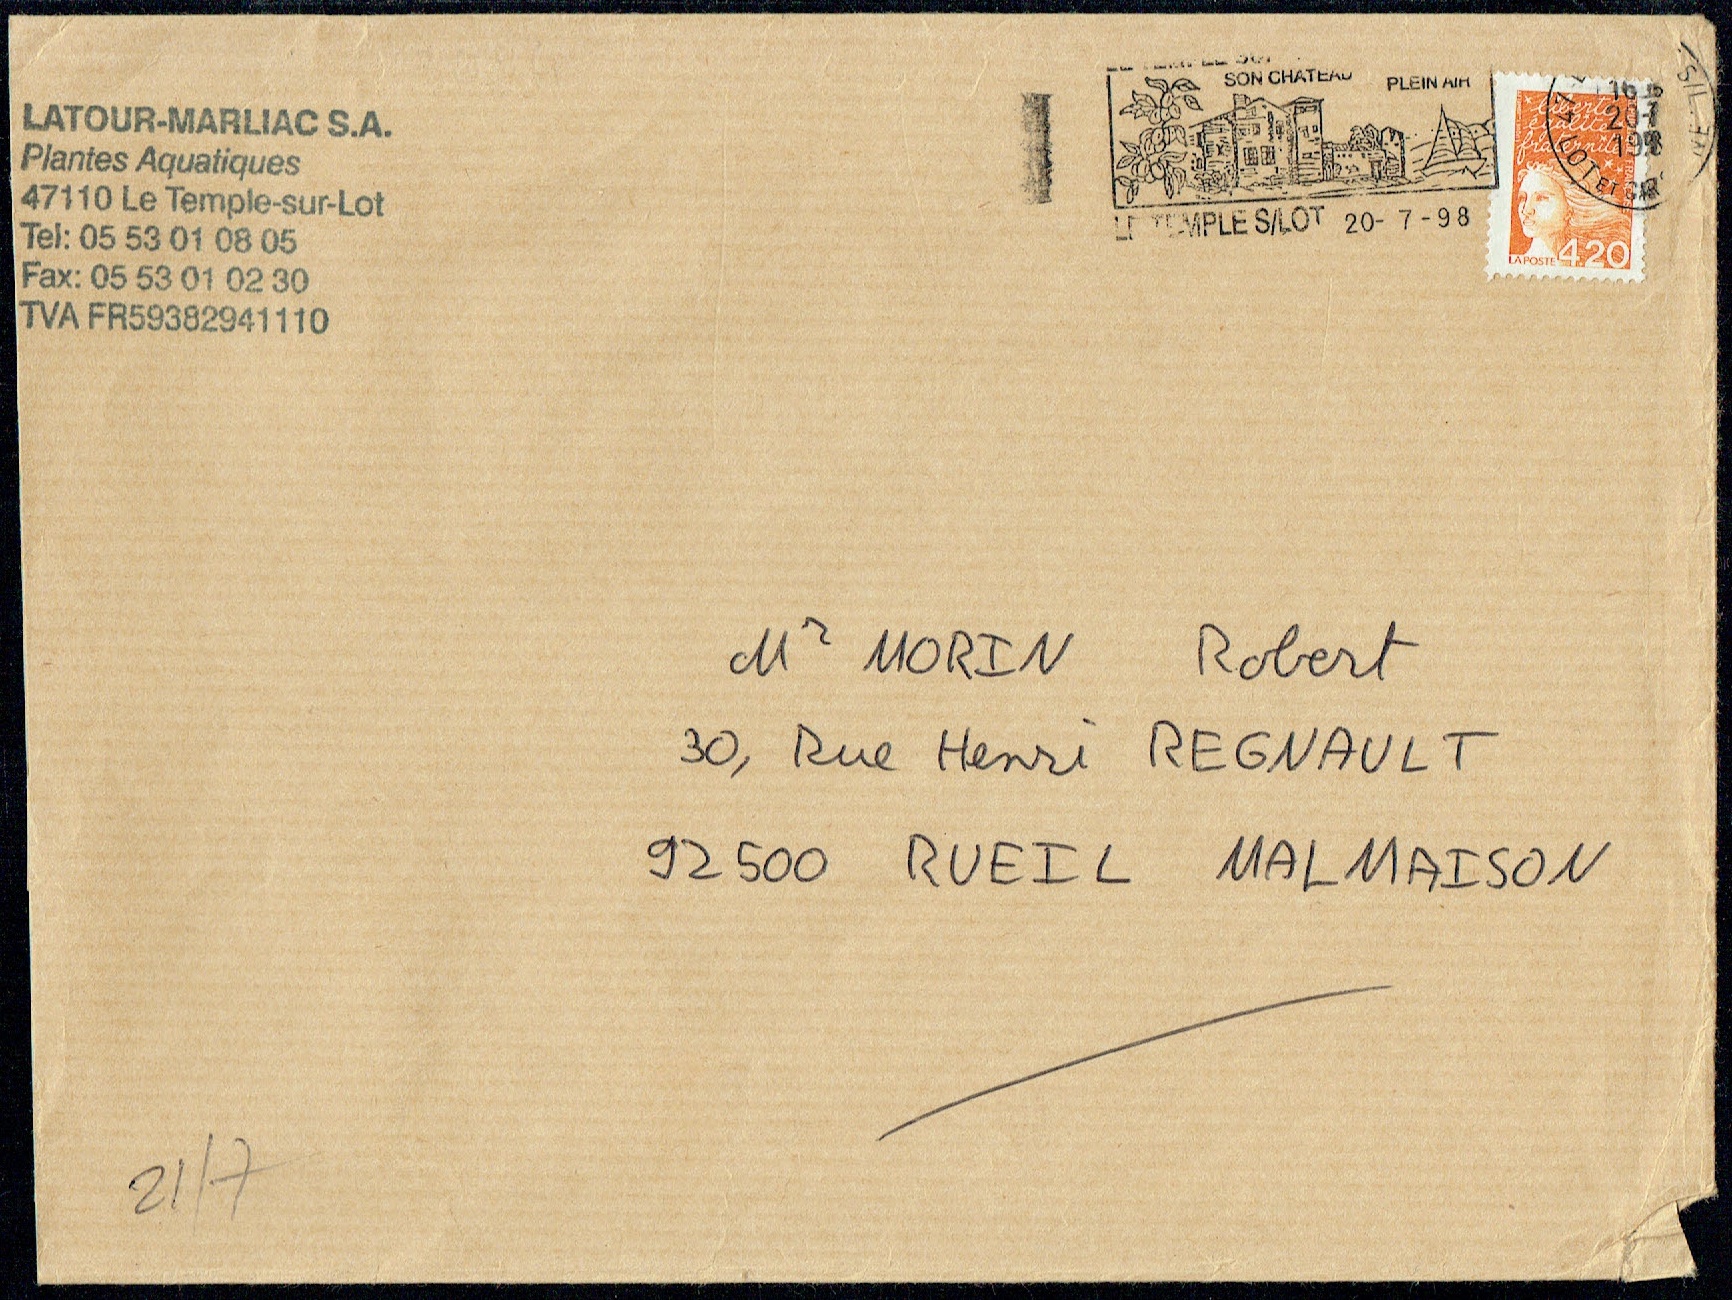 LATOUR-MARLIAC S.A.
Plantes Aquatiques
47110 Le Temple-sur-Lot
Tel: 05 53 01 08 05
Fax: 05 53 01 02 30
TVA FR59382941110
LE TEMPLE SUR
SON CHATEAU PLEIN AIR
LE TEMPLE S/LOT 20-7-98
liberté
égalité
fraternité
LA POSTE 4,20
16
20-7
1998
LOT ET GAR
Mr MORIN Robert
30, Rue Henri REGNAULT
92500 RUEIL MALMAISON
21/7